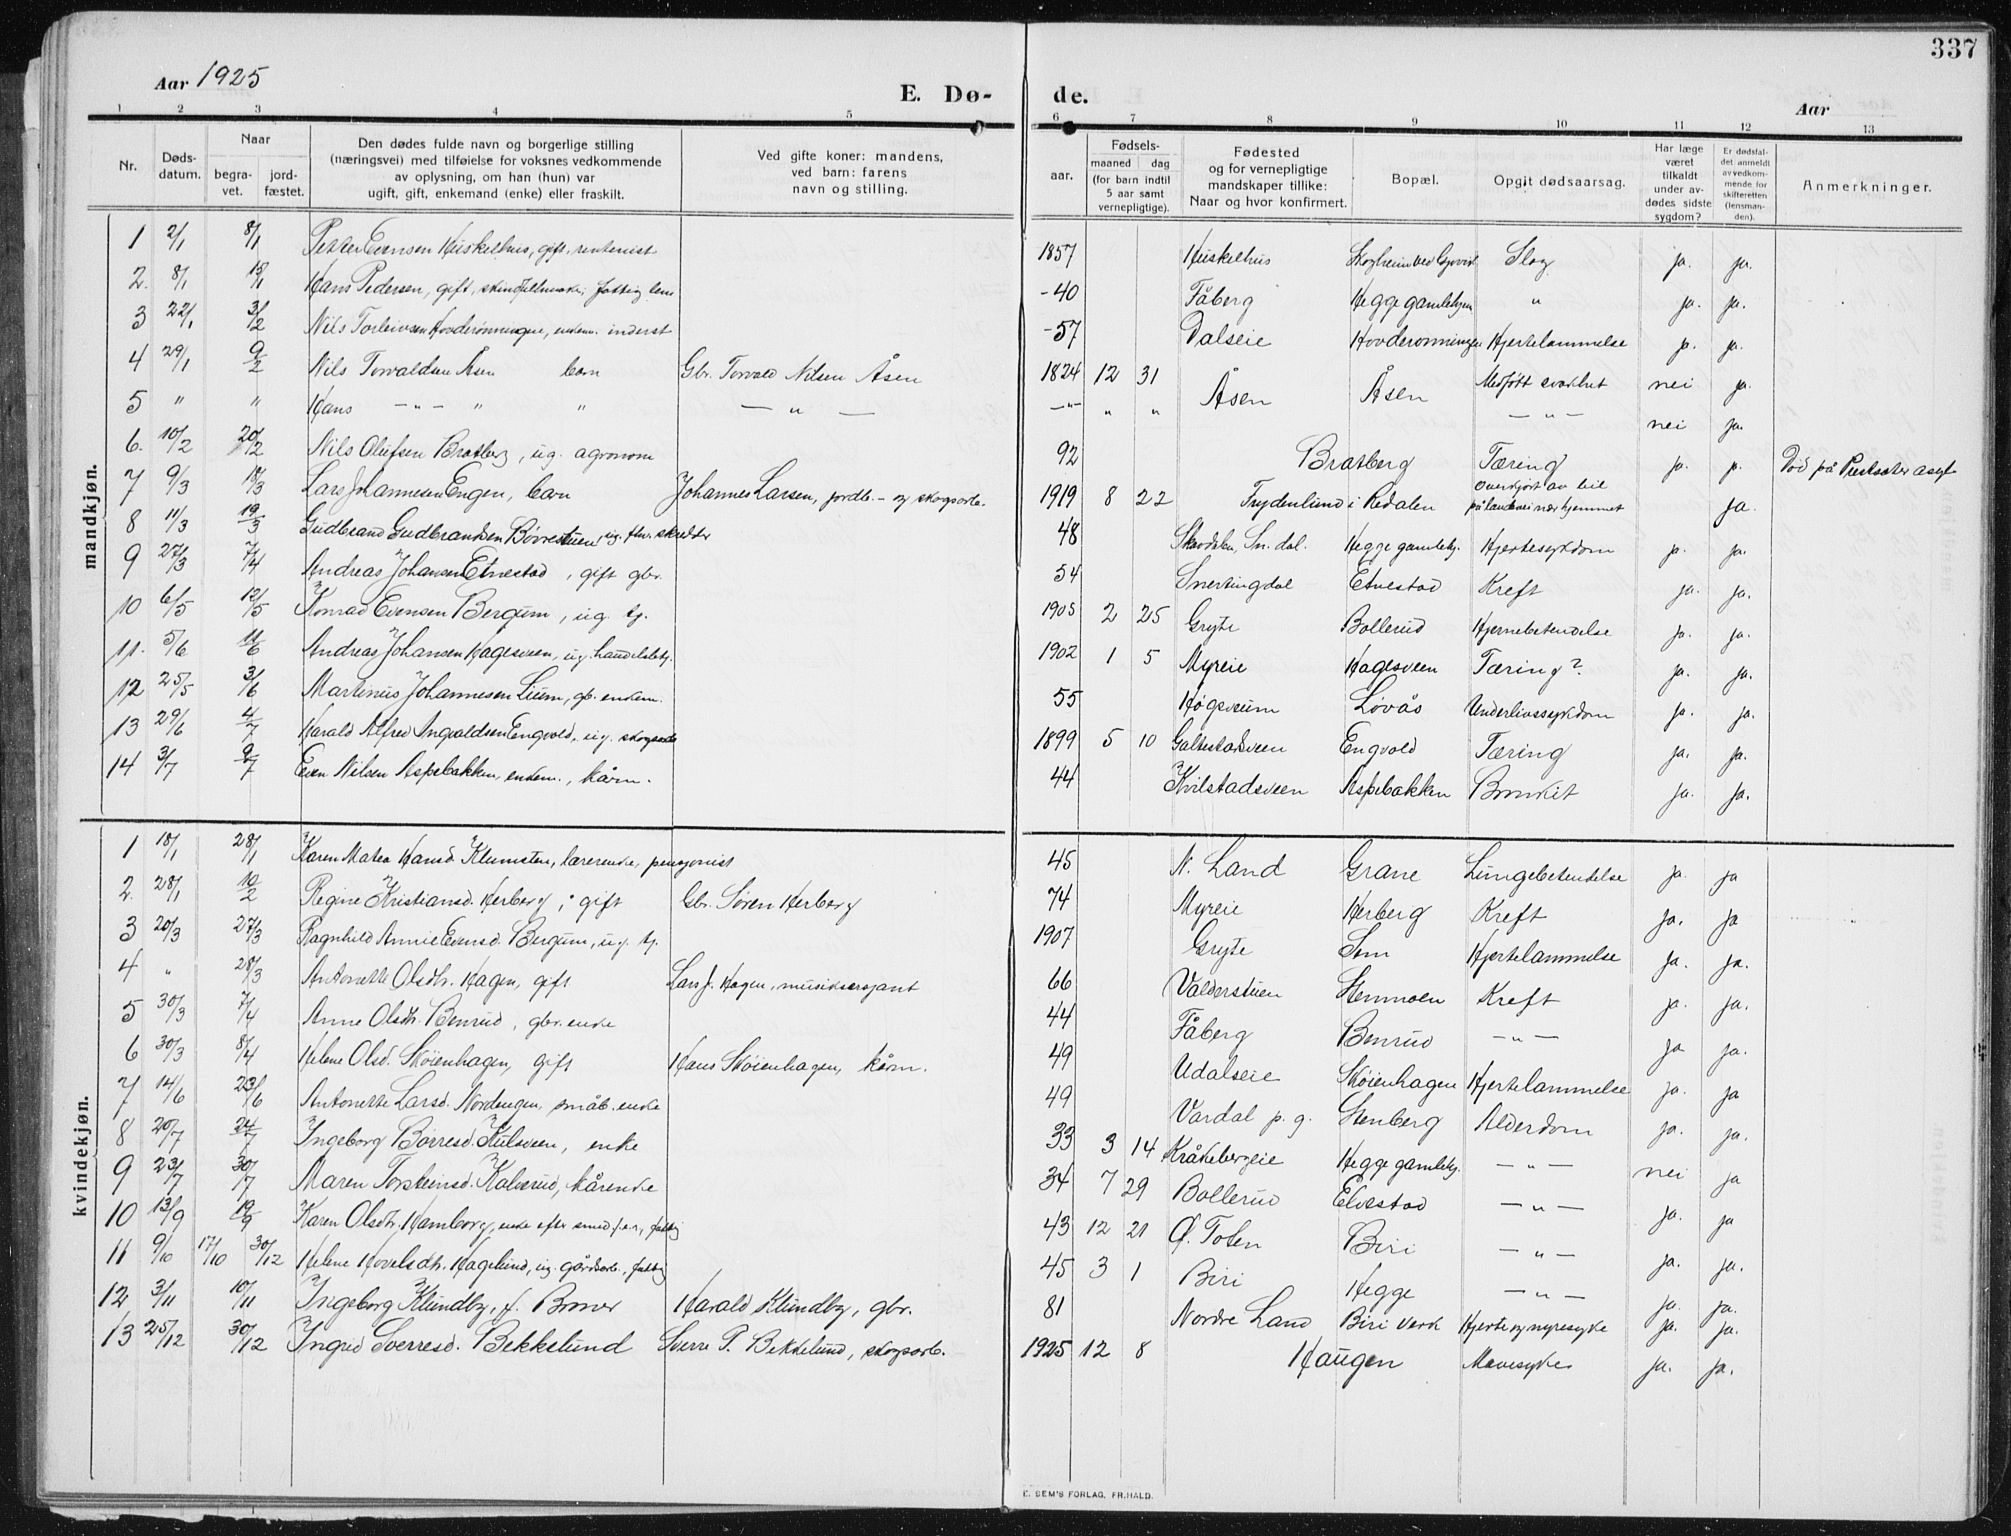 337
Aar 1925
E. Dø- de.
Aar
1 2 3 4 5 6 7 8 9 10 11 12 13
Nr. Døds-datum. Naar begra-vet. jord-fæstet. Den dødes fulde navn og borgerlige stilling (næringsvei) med tilføielse for voksnes vedkommende av oplysning, om han (hun) var ugift, gift, enkemand (enke) eller fraskilt. Ved gifte koner: mandens, ved barn: farens navn og stilling. Fødsels- aar. maaned dag (for barn indtil 5 aar samt vernepligtige). Fødested og for vernepligtige mandskaper tillike: Naar og hvor konfirmert. Bopæl. Opgit dødsaarsag. Har læge været tilkaldt under av-dødes sidste sygdom? Er dødsfal-det anmeldt av vedkom-mende for skifteretten (lensman-den). Anmerkninger.
mandkjøn.
1 2/1 8/1 Petter Evensen Huskelhus, gift, rentenist 1857 Huskelhus Skogheim ved Gjøvik Slag ja. ja.
2. 8/1 Hans Pedersen, gift, fattig lem -40 Fåberg Hegge gamlehjem " ja. ja.
3 22/1 3/2 Nils Torleivsen Hovderønningen, enkem. inderst -57 Dalseie Hovderønningen Hjertelammelse ja. ja.
4 29/1 9/2 Nils Torvaldsen Åsen barn Gbr. Torvald Nilsen Åsen 1824 12 31 Åsen Åsen Medfött svakhet nei ja.
5 " " Hans — " — " " — " — — " — " " — " — nei ja.
6. 10/2 20/2 Nils Olufsen Bratberg, ug. agronom 92 Bratberg Tæring ja. ja. Död på asyl
7 9/3 18/3 Lars Johannesen Engen, barn Johannes Larsen, jordb.- og skogsarb. 1919 8 22 Frydenlund i Redalen Overkjört av bil på landevei nær hjemmet ja.
8 11/3 19/3 Gudbrand Gudbrandsen Börrestuen, ug. fhv. skredder 48 Skardalen, Sn. dal. Hegge gamlehj. Hjertesykdom ja. ja.
9 27/3 7/4 Andreas Johansen Etnestad, gift gbr. 54 Snertingdal Etnestad Kreft ja. ja.
10 6/5 12/5 Konrad Evensen Bergum, ug. tj. 1905 2 25 Gryte Bollerud Hjernebetendelse ja. ja.
11. 5/6 11/6 Andreas Johansen Hagesveen, ug. handelsbetj. 1902 1 5 Myreie Hagesveen Tæring? ja. ja.
12 25/5 3/6 Martinus Johannesen Lium, gb. enkem. 55 Høgsveum Løvås Underlivssykdom ja. ja.
13 29/6 4/7 Harald Alfred Ingvaldsen Engvold, ug. skogsarb 1899 5 10 Galtestadsveen Engvold Tæring ja. ja.
14 3/7 9/7 Even Nilsen Aspebakken, enkem., kårm. 44 Kvilstadsveen Aspebakken Bronkit ja. ja.
kvindekjøn.
1 18/1 28/1 Karen Matea Hansd. Klumsten, lærerenke, pensjonist 45 N. Land Grane Lungebetendelse ja. ja
2. 28/1 10/2 Regine Kristiansd. Herberg, gift Gbr. Søren Herberg 74 Myreie Herberg Kreft ja. ja
3 20/3 27/3 Ragnhild Annie Evensd. Bergum, ug. tj. 1907 Gryte Sem Hjertelammelse ja. ja.
4 " 28/3 Antonette Olsdtr. Hagen, gift Lars J. Hagen, musiksersjant 66 Valderstuen Stenmoen Kreft ja. ja.
5 30/3 7/4 Anne Olsdtr. Benrud, gbr. enke 44 Fåberg Benrud — " — ja ja.
6 30/3 8/4 Helene Olsd. Skøienhagen, gift Hans Skøienhagen, kårm. 49 Udalseie Skøienhagen Hjertelammelse ja. ja
7 14/6 23/6 Antonette Larsd. Nordengen, småb. enke 49 Vardal p. g. Stenberg Alderdom ja. ja.
8 20/7 24/7 Ingeborg Börresd. Kulsveen, enke 33 3 14 Kråkebergeie Hegge gamlehj. — " — nei ja
9 23/7 30/7 Maren Torsteinsd. Kalverud, kårenke 34 7 29 Bollerud Elvestad — " — ja. ja
10 13/9 19/9 Karen Olsdtr. Hamborg, enke efter smed, fattig 43 12 21 Ø. Toten Biri — " — ja. ja.
11 9/10 17/10 30/12 Helene Hovelsdtr. Hagelund, ug. gårdsarb., fattig 45 3 1 Biri Hegge — " — ja. ja.
12 3/11 10/11 Ingeborg Klundby, f. Broner Harald Klundby, gbr. 81 Nordre Land Biri Verk Hjerte og nyresyke ja. ja.
13 25/12 30/12 Ingrid Sverresd. Bekkelund Sverre P. Bekkelund, skogsarb. 1925 12 8 Haugen Mavesyke ja. ja.
E. SEM'S FORLAG, FR.HALD.